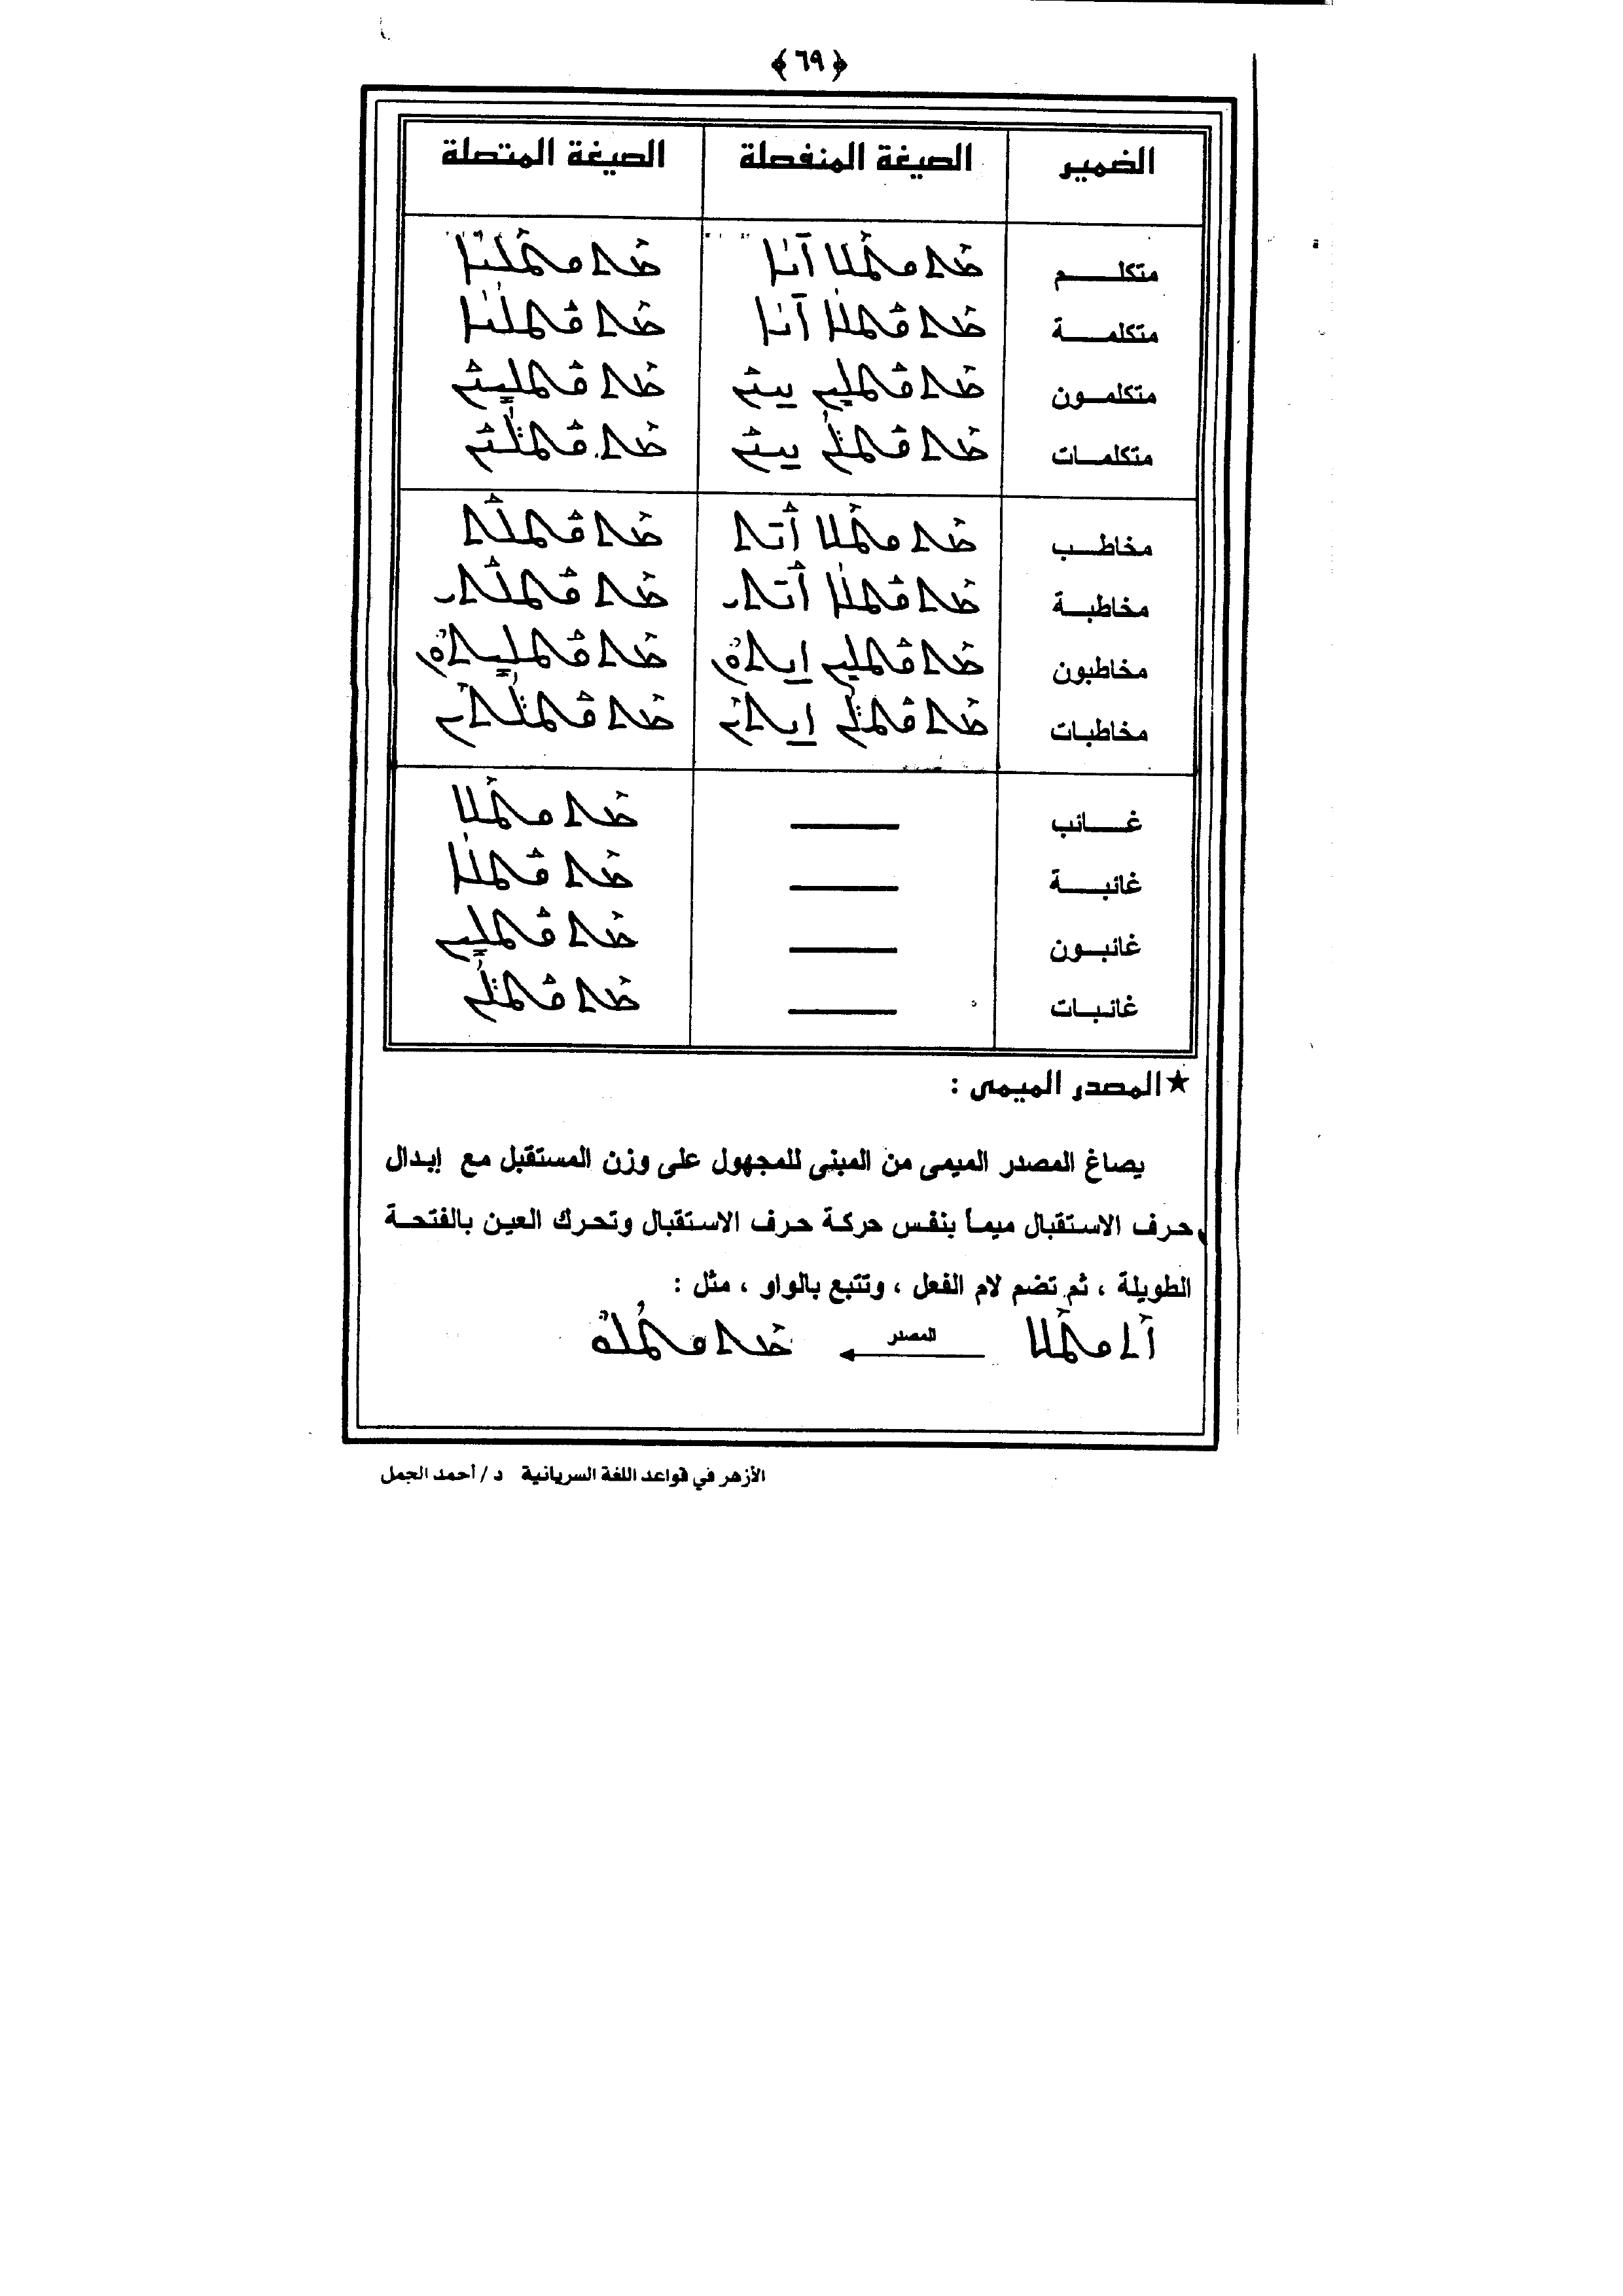 ﴿ ٦٩ ﴾
الضمير الصيغة المنفصلة الصيغة المتصلة
متكلـــــم ܡܬܩܛܠ ܐܢܐ ܡܬܩܛܠܢܐ
متكلمـــــة ܡܬܩܛܠܐ ܐܢܐ ܡܬܩܛܠܢܐ
متكلمـــون ܡܬܩܛܠܝܢ ܚܢܢ ܡܬܩܛܠܝܢܢ
متكلمـــات ܡܬܩܛܠܢ ܚܢܢ ܡܬܩܛܠܢܢ
مخاطـــب ܡܬܩܛܠ ܐܢܬ ܡܬܩܛܠܬ
مخاطبـــة ܡܬܩܛܠܐ ܐܢܬܝ ܡܬܩܛܠܬܝ
مخاطبون ܡܬܩܛܠܝܢ ܐܢܬܘܢ ܡܬܩܛܠܝܬܘܢ
مخاطبـات ܡܬܩܛܠܢ ܐܢܬܝܢ ܡܬܩܛܠܬܝܢ
غـــــائب ــــــ ܡܬܩܛܠ
غائبـــــة ــــــ ܡܬܩܛܠܐ
غائبـــون ــــــ ܡܬܩܛܠܝܢ
غائبـات ــــــ ܡܬܩܛܠܢ
★ المصدر الميمى :
يصاغ المصدر الميمى من المبنى للمجهول على وزن المستقبل مع إبدال
حرف الاستقبال ميماً بنفس حركة حرف الاستقبال وتحرك العين بالفتحـة
الطويلة ، ثم تضم لام الفعل ، وتتبع بالواو ، مثل :
ܐܬܩܛܠ المصدر ← ܡܬܩܛܠܘ
الأزهر في قواعد اللغة السريانية د / أحمد الجمل